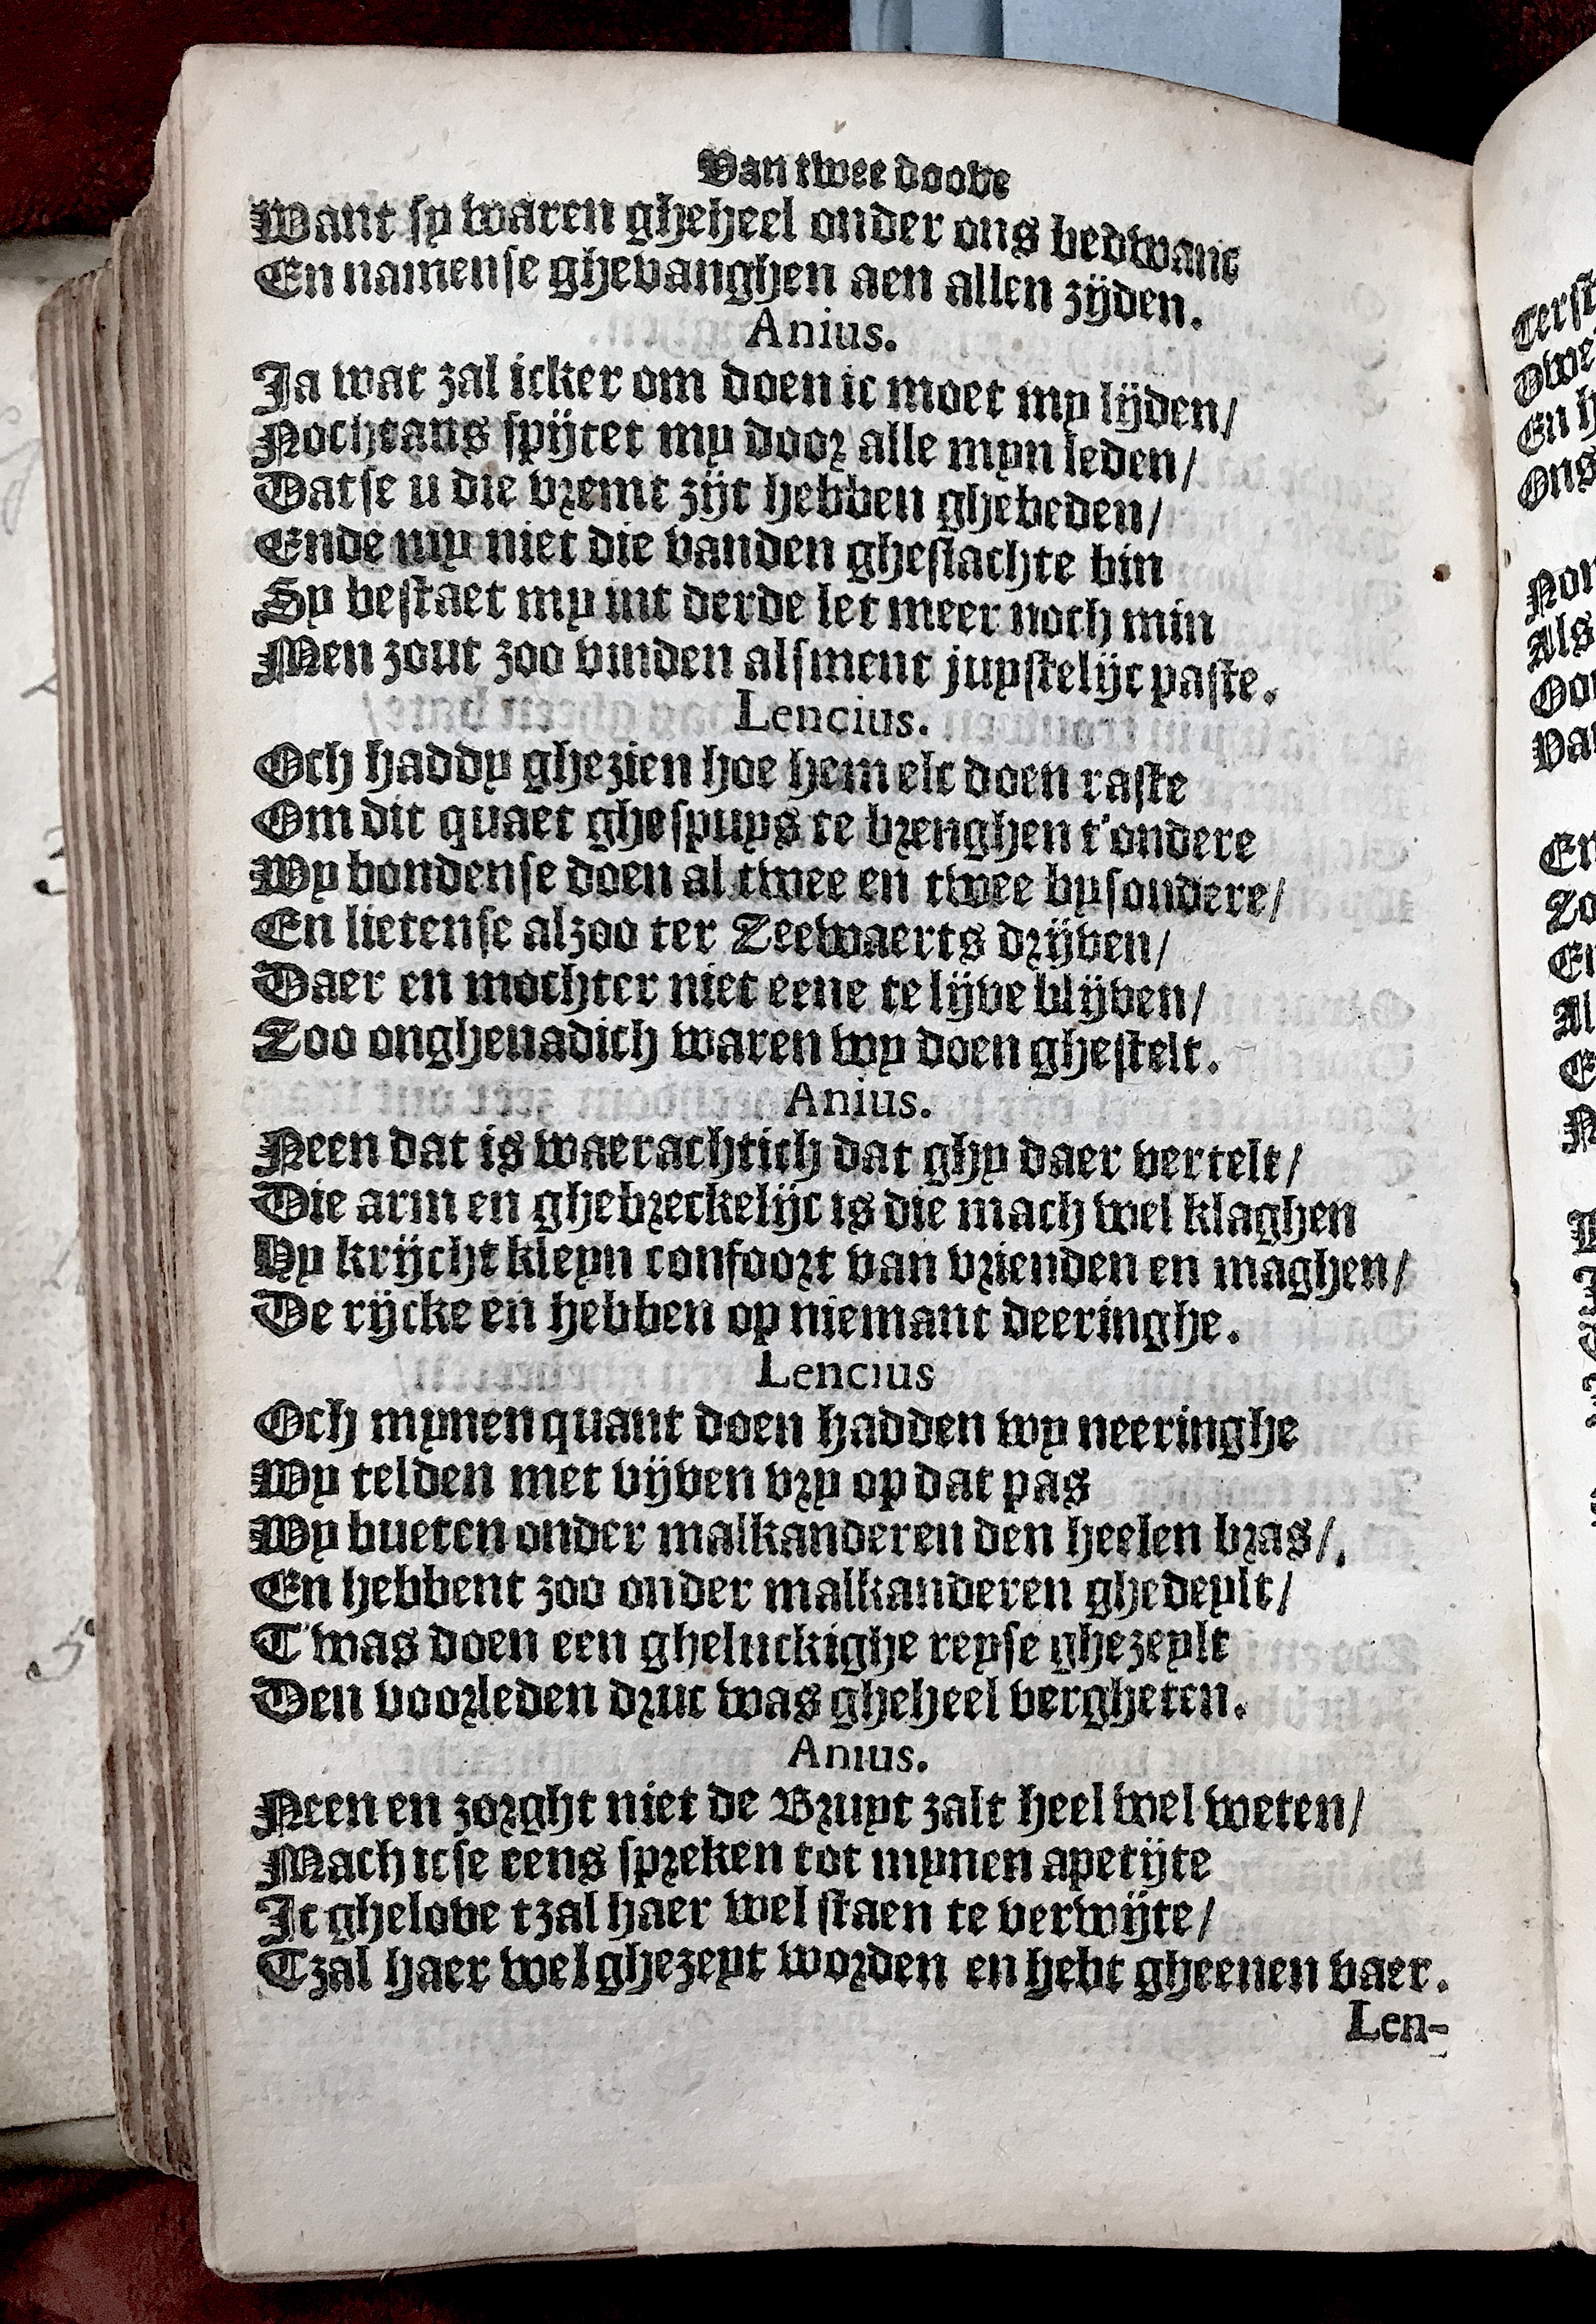 Van twee doove
Want sy waren gheheel onder ons bedwanc
En namense ghevanghen aen allen zijden.
Anius.
Ja wat zal icker om doen ic moet my lijden/
Nochtans spijtet my door alle myn leden/
Datse u die vremt zijt hebben ghebeden/
Ende my niet die vanden gheslachte bin
Sy bestaet my int derde let meer noch min
Men zout zoo vinden alsment juystelijc paste.
Lencius.
Och haddy ghezien hoe hem elc doen raste
Om dit quaet ghespuys te brenghen t'ondere
Wy bondense doen al twee en twee bysondere/
En lietense alzoo ter Zeewaerts drijven/
Daer en mochter niet eene te lijve blijven/
Zoo onghenadich waren wy doen ghestelt.
Anius.
Neen dat is waerachtich dat ghy daer vertelt/
Die arm en ghebreckelijc is die mach wel klaghen
Hy krijcht kleyn confoort van vrienden en maghen/
De rijcke en hebben op niemant deeringhe.
Lencius
Och mynen quant doen hadden wy neeringhe
Wy telden met vijven vry op dat pas
Wy bueten onder malkanderen den heelen bras/.
En hebbent zoo onder malkanderen ghedeylt/
T'was doen een gheluckighe reyse ghezeylt
Den voorleden druc was gheheel vergheten.
Anius.
Neen en zorght niet de Bruyt zalt heel wel weten/
Mach icse eens spreken tot mynen apetijte
Ic ghelove tzal haer wel staen te verwijte/
Tzal haer wel ghezeyt worden en hebt gheenen vaer.
Len-